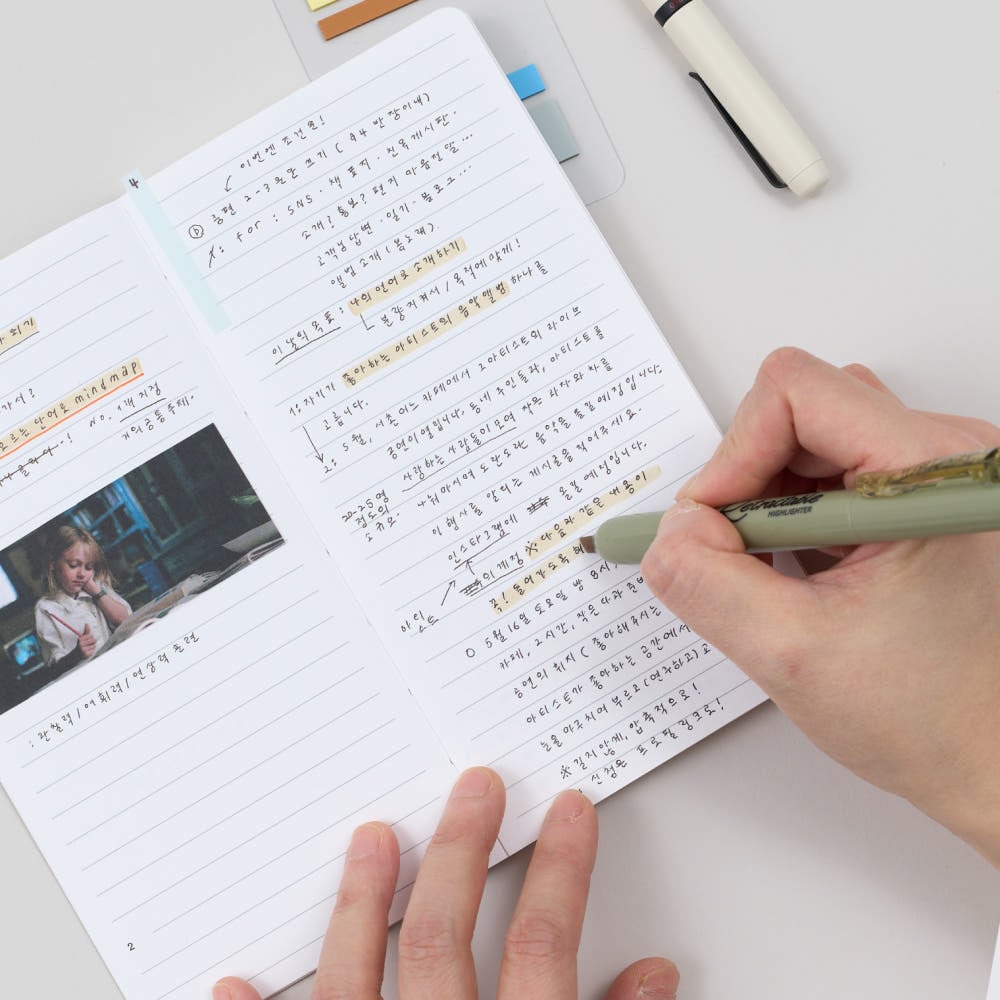 가 되기
오르는 단어로 mindmap
! NO. 1개 지정
거의 공통주제.
: 관찰력/어휘력/연상력 훈련
2
4
↙ 이번엔 조건을!
ⓑ 종편 2-3문단 쓰기 ( A4 반 장 이내)
※: FOR : SNS · 책 표지 · 친목게시판 ·
소개? 홍보? 편지 마음전달...
고객님답변 · 일기 · 블로그...
앨범 소개 (봄노래).
이 날의 목표 : 나의 언어로 소개하기
분량 지켜서 / 목적에 맞게!
1: 자기가 좋아하는 아티스트의 음악 앨범 하나를
고릅니다.
2: 5월, 서촌 어느 카페에서 그 아티스트의 라이브
공연이 열립니다. 동네 주민들과, 아티스트를
20-25명 정도의 소규모.
사랑하는 사람들이 모여 작은 과자와 차를
나눠마시며 도란도란 음악을 들을 예정입니다.
이 행사를 알리는 게시글을 적어주세요.
인스타그램에 올릴 예정입니다.
아티스트
의 계정 ※다음과 같은 내용이
꼭! 들어가도록 해
○ 5월 16일 토요일 밤 8시
카페, 2시간, 작은 다과 준비
공연의 취지 ( 좋아해주시는
아티스트가 좋아하는 공간에서
눈을 마주치며 부르고(연주하고)
※ 길지않게, 압축적으로!
신청은 프로필링크로!
Retractable
HIGHLIGHTER